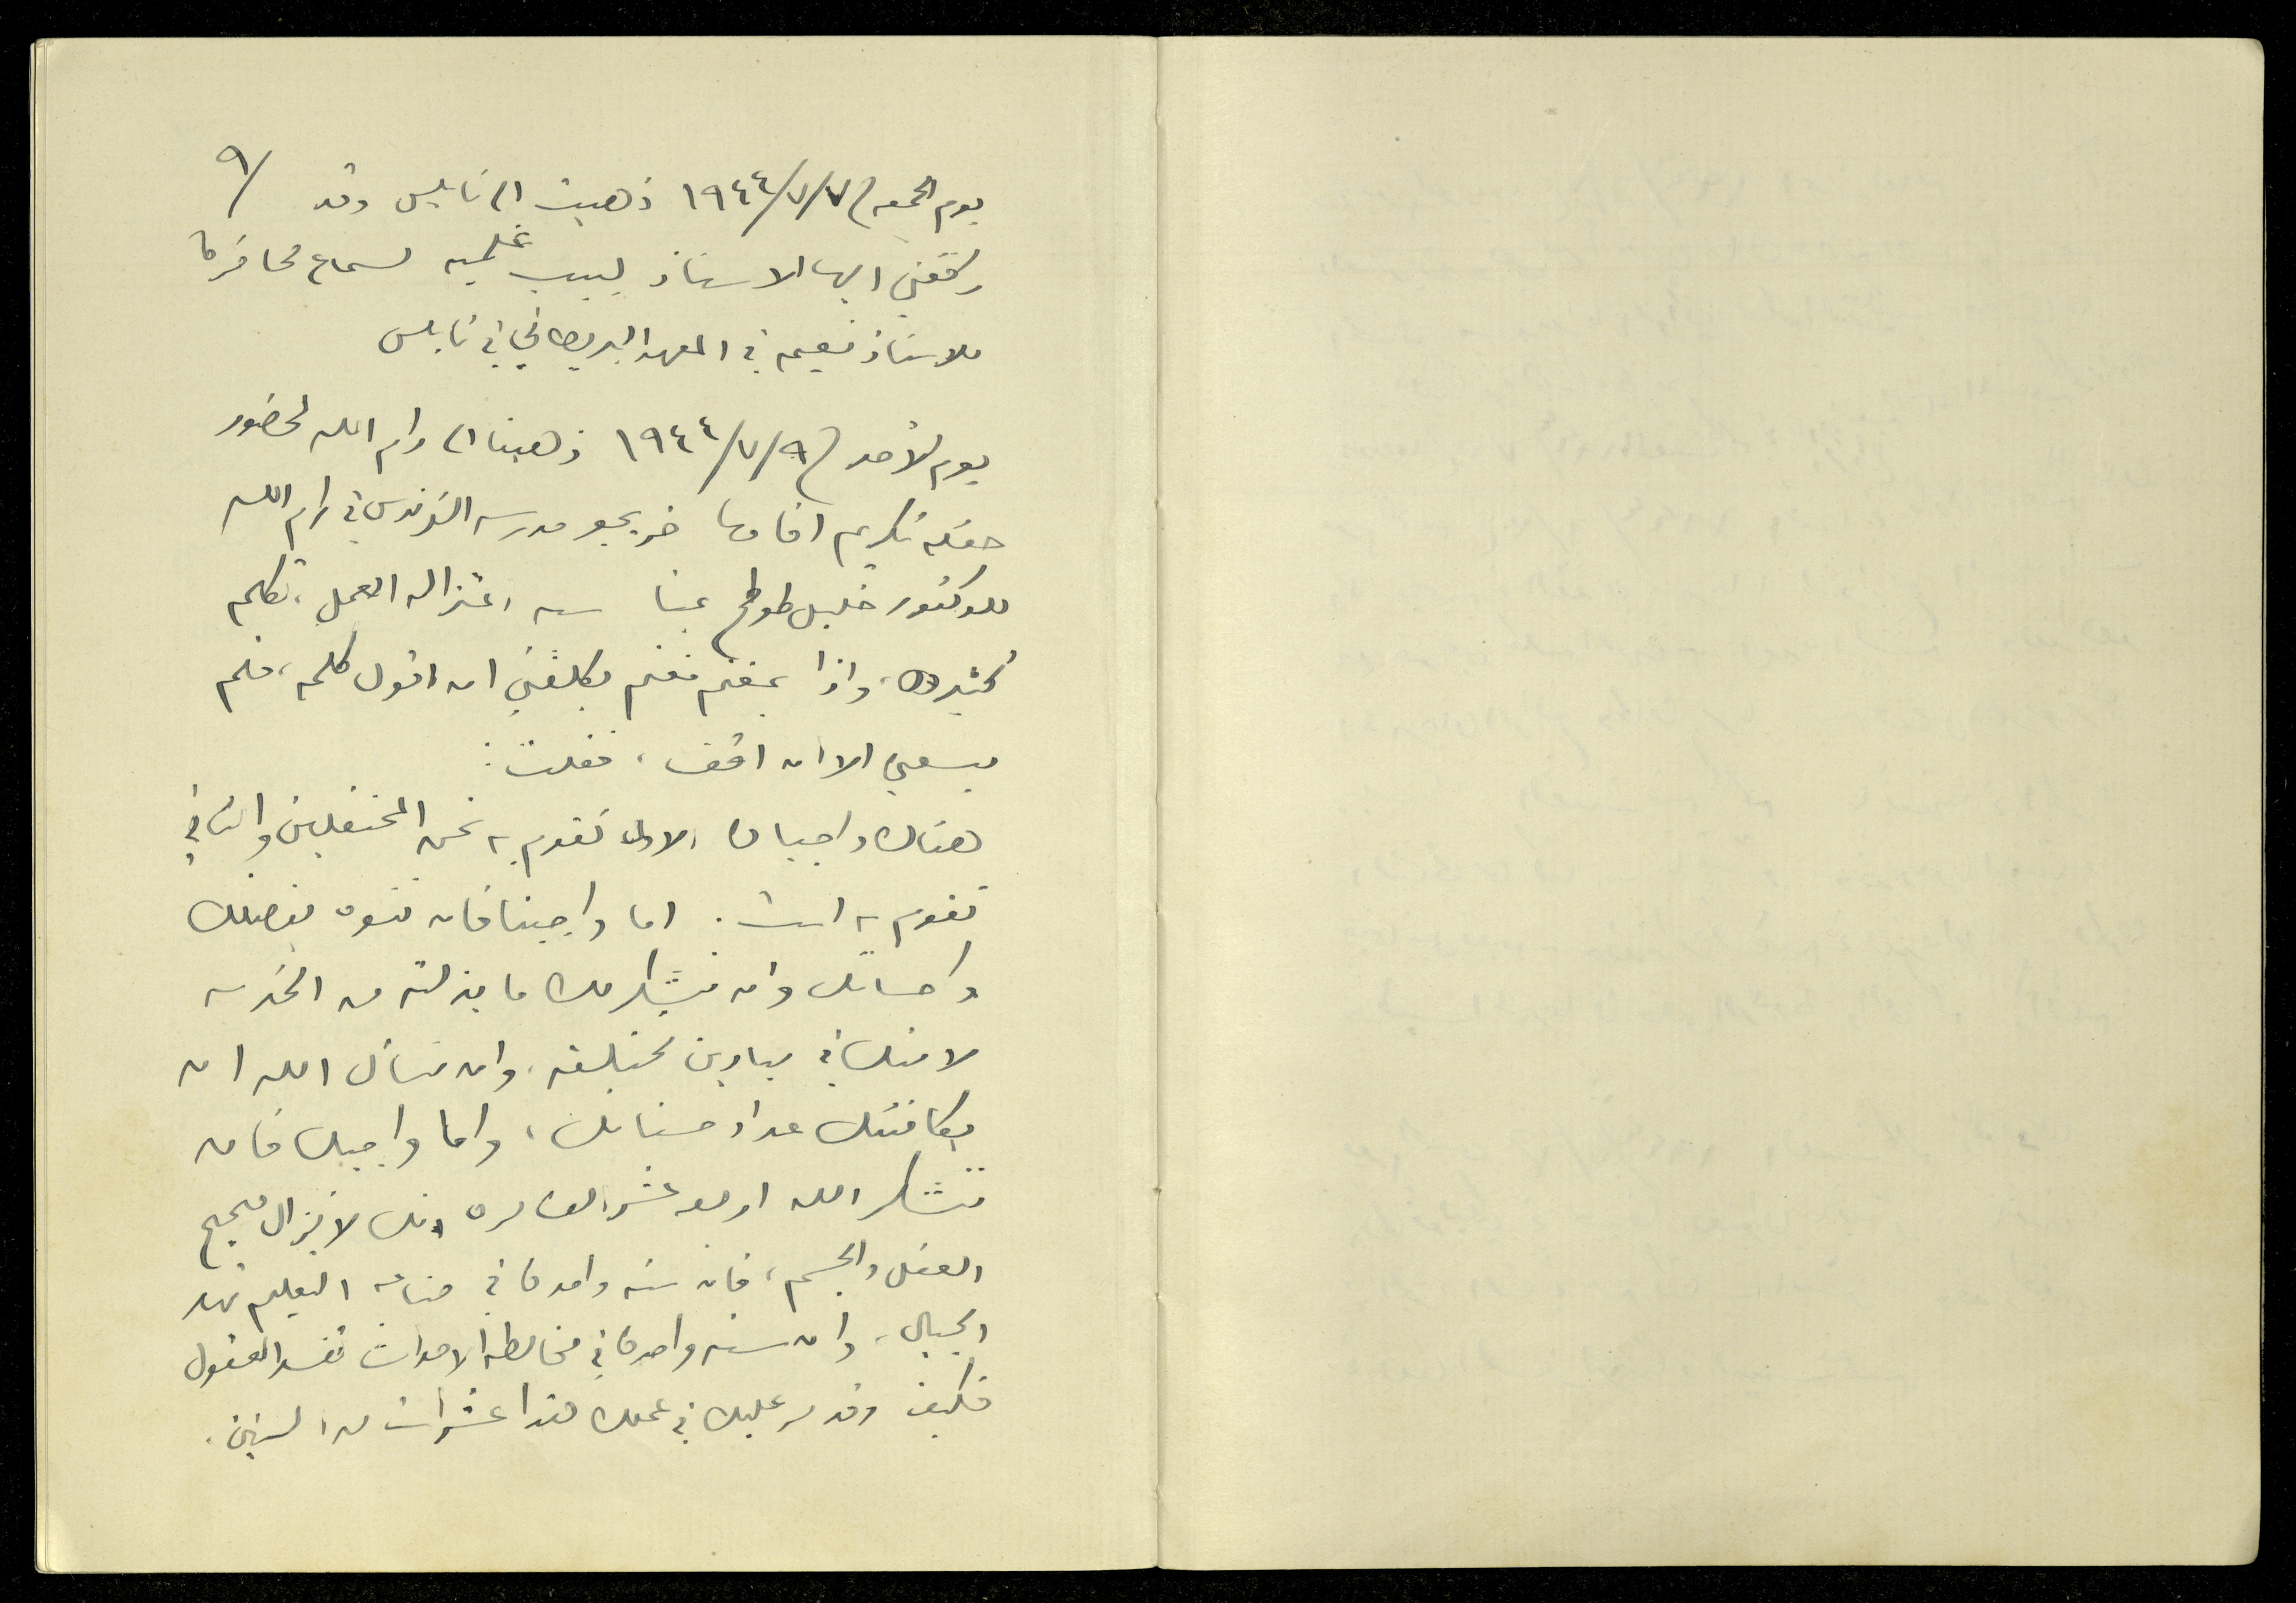 ٩/
يوم الجمعة في ٧/٧/١٩٤٤ ذهبت الى نابلس وقد
رافقني اليها الاستاذ لبيب غلميه لسماع محاضرة
للاستاذ نعيمه في المعهد البريطاني في نابلس
يوم الأحد في ٩/٧/١٩٤٤ ذهبنا الى رام الله لحضور
حفلة تكريم اقامها خريجو مدرسة الفرندس في رام الله
للدكتور خليل طوطح بمناسبة اعتزاله العمل، تكلم
كثيرون، واذا بعضهم يكلفني ان اقول كلمة، فلم
يسعني الا ان اقف، فقلت:
هناك واجبان الاول نقوم به نحن المحتفلين والثاني
تقوم به انت. اما واجبنا فان ننوه بفضلك
واحسانك وان نشكر لك ما بذلته من الخدمة
لامتك في ميادين مختلفة، وان نسأل الله ان
يكافئك عداد حسناتك، واما واجبك فان
تشكر الله انك لا تزال صحيح
العقل والجسم، فان سنة واحدة في صناعة التعليم تهد
الجبال، وان سنة واحدة في مخالطة الاحداث تفسد العقول
فكيف وقد مر عليك في عملك هذا عشرات من السنين.